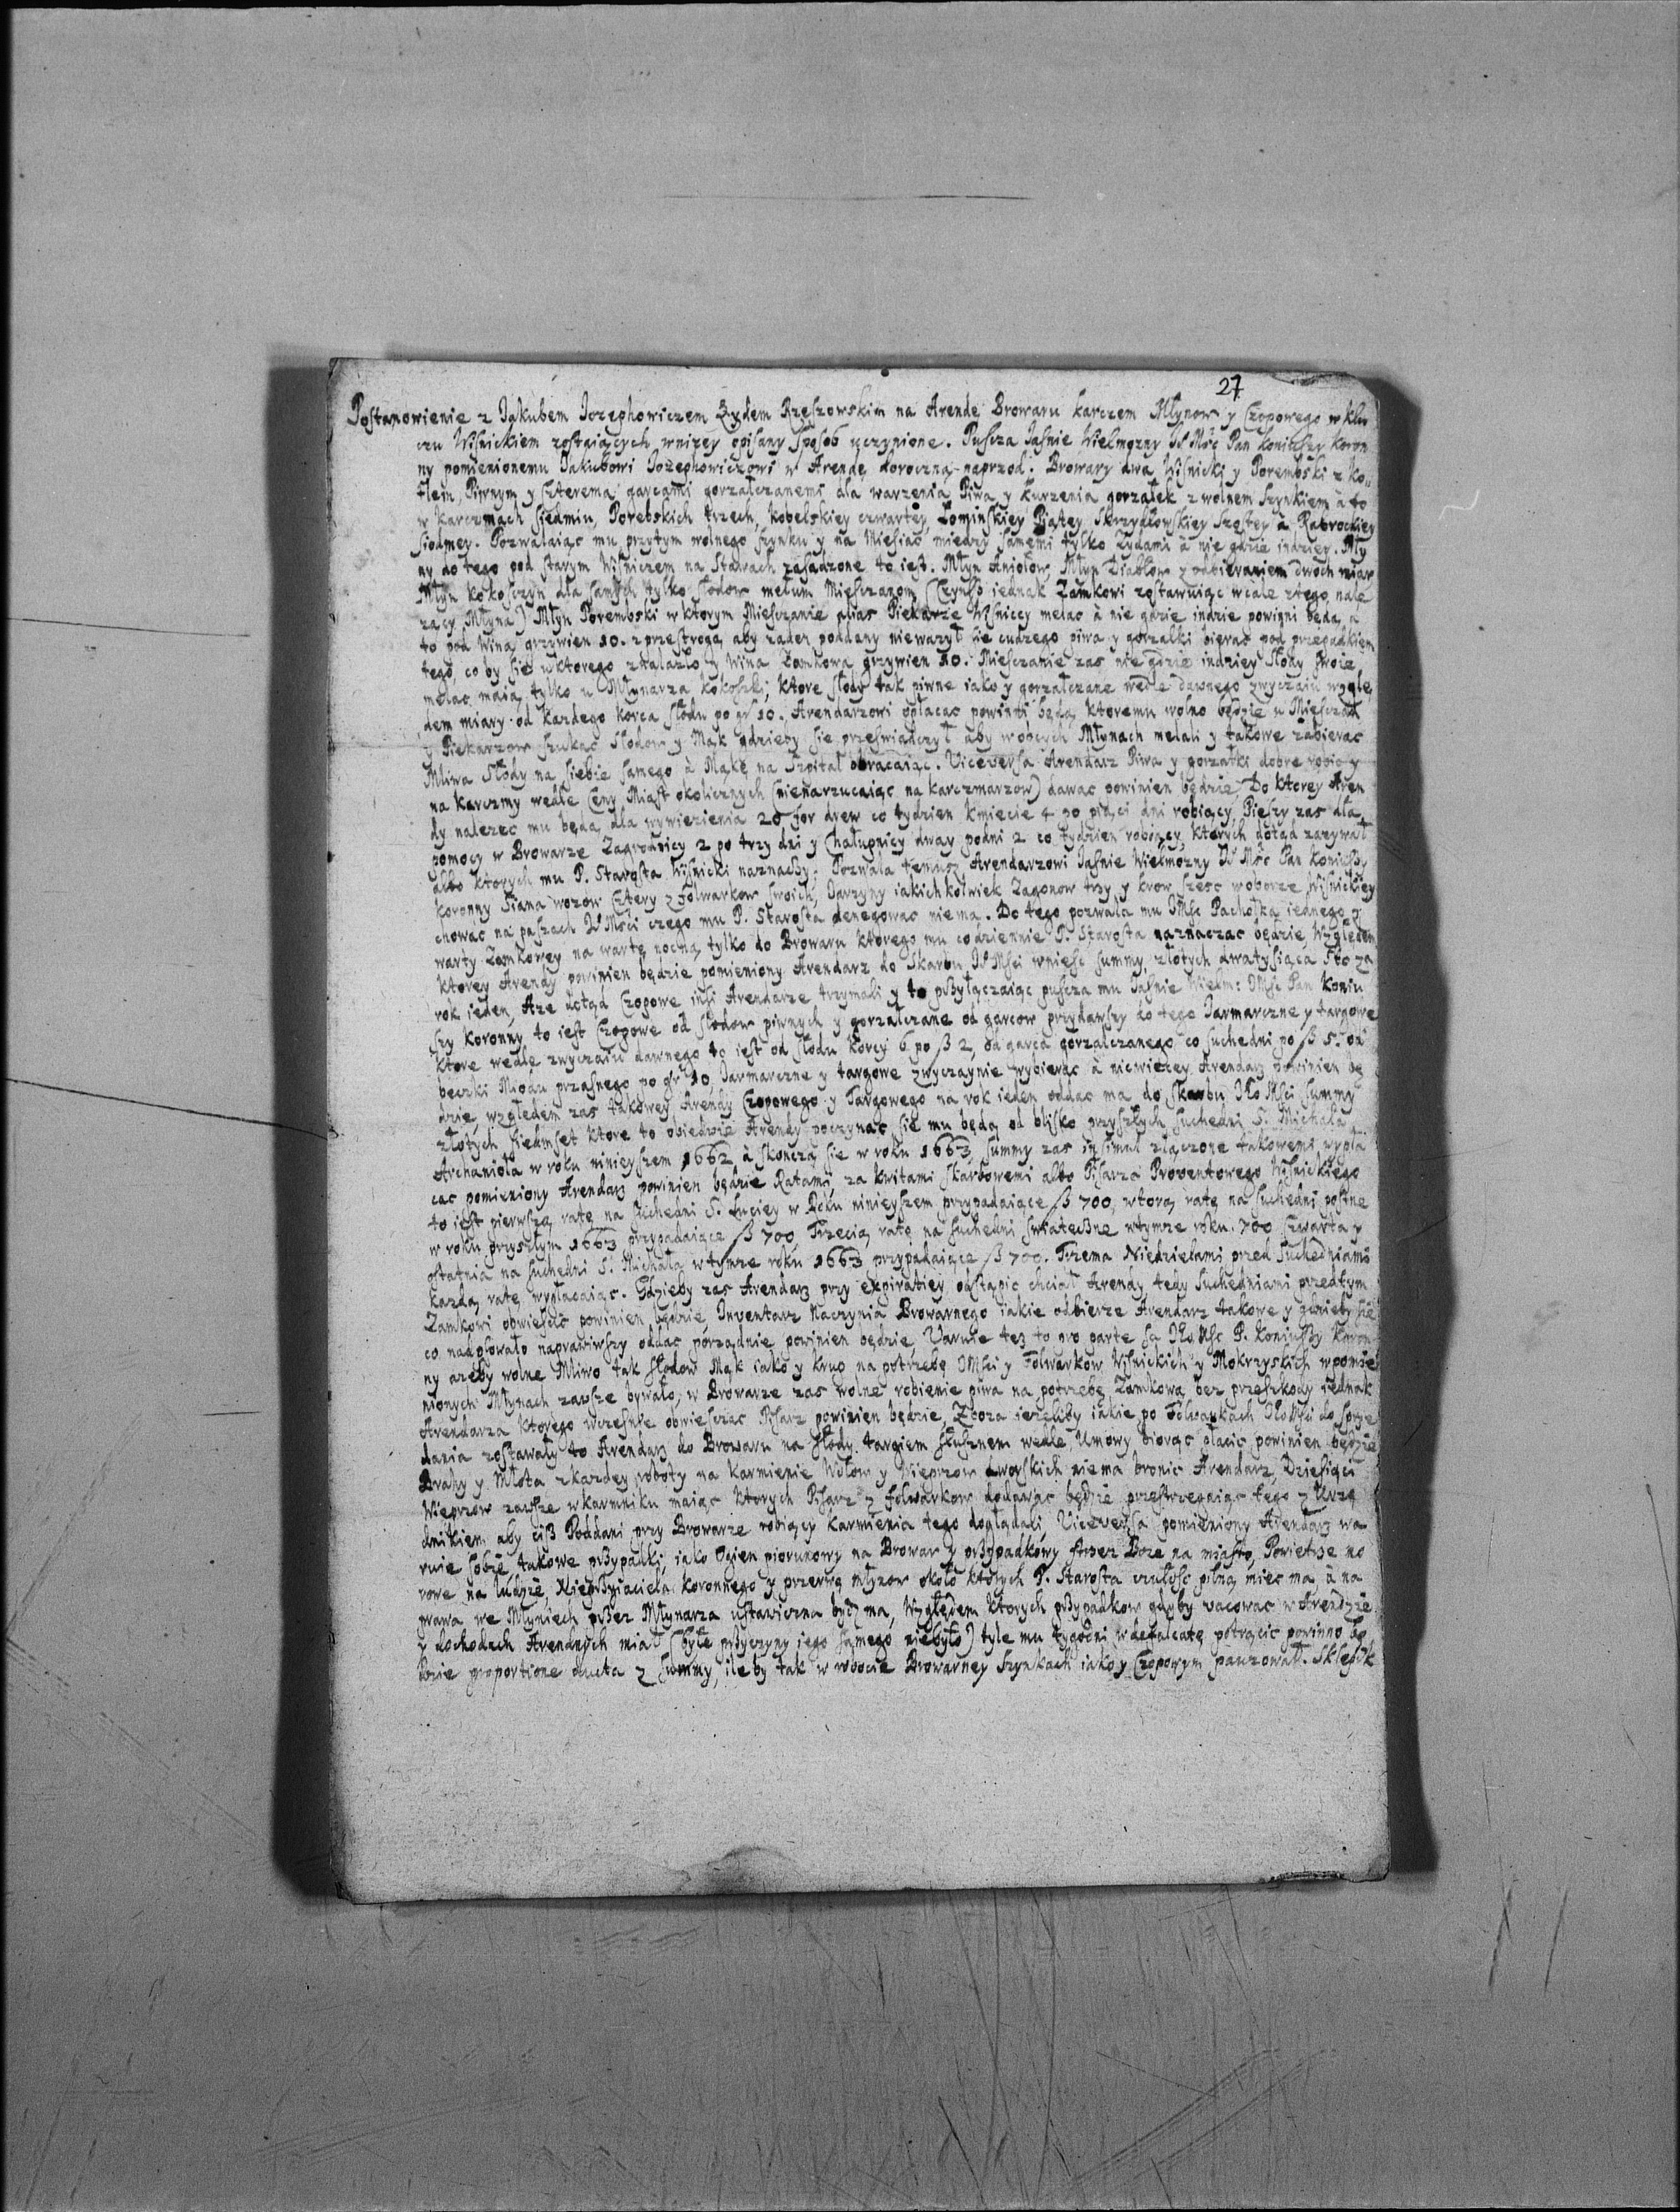 27
Postanowienie z Jakubem Jozephowiczem Zydem Rzeszowskim na Arendę Browaru karczem Młynow y Czopowego w klu
czu Wiśnickiem zostaiących, wnizey opisany sposob uczynione. Puscza Jasnie Wielmozny JeMść Pan koniuszy koron
ny pomienionemu Jakubowi Jozephowiczowi w Arendę doroczną naprzod. Browary dwa Wiśnicki y Porembski z ko
tlem, Piwnym y czterema garcami gorzałczanemi dla warzenia Piwa y kurzenia gorzałek z wolnem szynkiem à to
w karczmach siedmiu, Porebskich trzech, kobelskiey czwartey, Łominskiey Piątey, Skrzydłowskiey szostey à Rabrockiey
siodmey. Pozwalaiąc mu przytym wolnego szynku y na Miesiac miedzy samemi tylko Zydami à nie gdzie indziey. Mły
ny do tego pod starym Wiśniczem na Stawach zasadzone to iest. Młyn Aniołow, Młyn Diabłow z odbieraniem dwoch miar
Młyn kokosczyn dla samych tylko słodow melum Miesczanom (Czynsz iednak Zamkowi zostawuiąc wcale ztego nale
zący Młyna) Młyn Porembski w ktorym Miesczanie alias Piekarze Wiśniccy melac à nie gdzie indzie powinni będą, a
to pod winą grzywien 10. z przestrogą aby zaden poddany niewazył sie cudzego piwa y gorzałki bierac pod przepadkiem
tego, co by sie u ktorego znalazło y Winą Zamkową grzywien 10. Miesczanie zas nie gdzie indziey słody swoie
melac maią tylko u Młynarza kokoszki; ktore słody tak piwne iako y gorzałczane wedle dawnego zwyczaiu wzglę
dem miary od kazdego korca słodu po gr 10. Arendarzowi opłacac powinni będą, ktoremu wolno będzie u Miesczan
y Piekarzow szukac słodow y Mąk gdzieby sie przeswiadczył aby w obcych Młynach melali y takowe zabierac
Mliwa słody na siebie samego à Mąkę na Szpital obracaiąc. Viceversa Arendarz Piwa y gorzałki dobre robic y
na karczmy wedle Ceny Miast okolicznych (nienarzucaiąc na karczmarzow) dawac powinien będzie. Do ktorey Aren
dy nalezec mu będą dla wywiezienia 20 for drew co tydzien kmiecie 4 po pięci dni robiący, Pieszy zas dla
pomocy w Browarze Zagrodnicy 2 po trzy dni y Chałupnicy dway podni 2 co tydzien robiący, ktorych dotąd zazywał
albo ktorych mu P. Starosta Wiśnicki naznaczy. Pozwala temusz Arendarzowi Jasnie Wielmozny JeMść Pan koniuszy
koronny Siana wozow cztery z folwarkow swoich, Jarzyny iakichkolwiek Zagonow trzy y krow szesc w oborze Wiśnickiey
chowac na paszach JeMści czego mu P. Starosta denegowac niema. Do tego pozwala mu JMsc Pachołka iednego z
warty Zamkowey na wartę nocną tylko do Browaru ktorego mu codziennie P. Starosta naznaczac będzie, względem
ktorey Arendy powinien będzie pomieniony Arendarz do Skarbu JeMsci wniesc summy, złotych dwatysiąca sto za
rok ieden, Aze dotąd Czopowe insi Arendarze trzymali y to przyłączaiąc puscza mu Jasnie Wielm: JMsc Pan koniu
szy koronny to iest Czopowe od słodow piwnych y gorzałczane od garcow przydawszy do tego Jarmarczne y targowe
ktore wedle zwyczaiu dawnego to iest od słodu korcy 6 po β 2, od garca gorzałczanego co suchedni po β 5. od
beczki Miodu przasnego po gr 10, Jarmarczne y targowe zwyczaynie wybierac à niewięcey Arendarz powinien bę
dzie, względem zas takowey Arendy Czopowego y Targowego na rok ieden oddac ma do skarbu JeoMsci summy
złotych siedmset ktore to obiedwie Arendy poczynac sie mu będą od blisko przyszłych suchedni S. Michała
Archanioła w roku ninieyszem 1662 à skonczą sie w roku 1663, summy zas insimul złączone takowemi wypła
cac pomieniony Arendarz powinien będzie Ratami, za kwitami skarbowemi albo Pisarza Proventowego Wiśnickiego
to iest pierwszą ratę na suchedni S. Łuciey w Roku ninieyszem przypadaiące β 700, wtorą ratę na suchedni postne
w roku przyszłym 1663 przypadaiące β 700, Trzecią ratę na suchedni swiateczne w tymze roku. 700 czwarta y
ostatnia na suchedni S. Michała w tymze roku 1663 przypadaiące β 700. Trzema Niedzielami przed suchedniami
kazdą ratę wypłacaiąc. Gdzieby zas Arendarz przy expiratiey odstąpic chciał Arendy, tedy suchedniami przedtym
Zamkowi obwiescic powinien będzie. Inventarz Naczynia Browarnego iakie odbierze Arendarz takowe y gdzieby się
co nadpsowało naprawiwszy oddac porządnie powinien będzie. Varuie tez to pro parte sa JeoMsc P. koniuszy koron
ny azeby wolne Mliwo tak słodow Mąk iako y krup na potrzebę JMsci y Folwarkow Wiśnickich y Mokrzyskich w pomie
nionych Młynach zawsze bywało, w Browarze zas wolne robienie piwa na potrzebę Zamkową bez przeszkody iednak
Arendarza ktorego wczesnie obwiesczac Pisarz powinien będzie, Zboza iezeliby iakie po Folwarkach JeoMsci do sprze
dania zostawały to Arendarz do Browaru na słody targiem słusznem wedle Umowy biorąc płacic powinien będzie
Brahy y Młota z kazdey roboty na karmienie Wołow y Wieprzow dworskich niema bronic Arendarz, Dziesiąci
Wieprzow zawsze w karmniku maiąc ktorych Pisarz z folwarkow dodawac będzie przestrzegaiąc tego z Urzę
dnikiem aby ciż Poddani przy Browarze robiący karmienia tego doglądali, Viceversa pomieniony Arendarz wa
ruie sobie takowe przypadki, iako Ogien piorunowy na Browar y przypadkowy strzez Boze na miasto, Powietrze mo
rowe na ludzie, Nieprzyiaciela koronnego y przerwę młynow około ktorych P. Starosta czułosc pilną miec ma, à na
prawa we Młyniech przez Młynarza ustawiczna bydz ma, Względem ktorych przypadkow gdyby vacowac w Arendzie
y dochodach Arendnych miał (byle przyczyny iego samego niebyło) tyle mu tygodni w defalcatę potrącic powinno bę
dzie proportione ducta z summy, ile by tak w robocie Browarney Szynkach iako y Czopowym pauzował. Sklepik